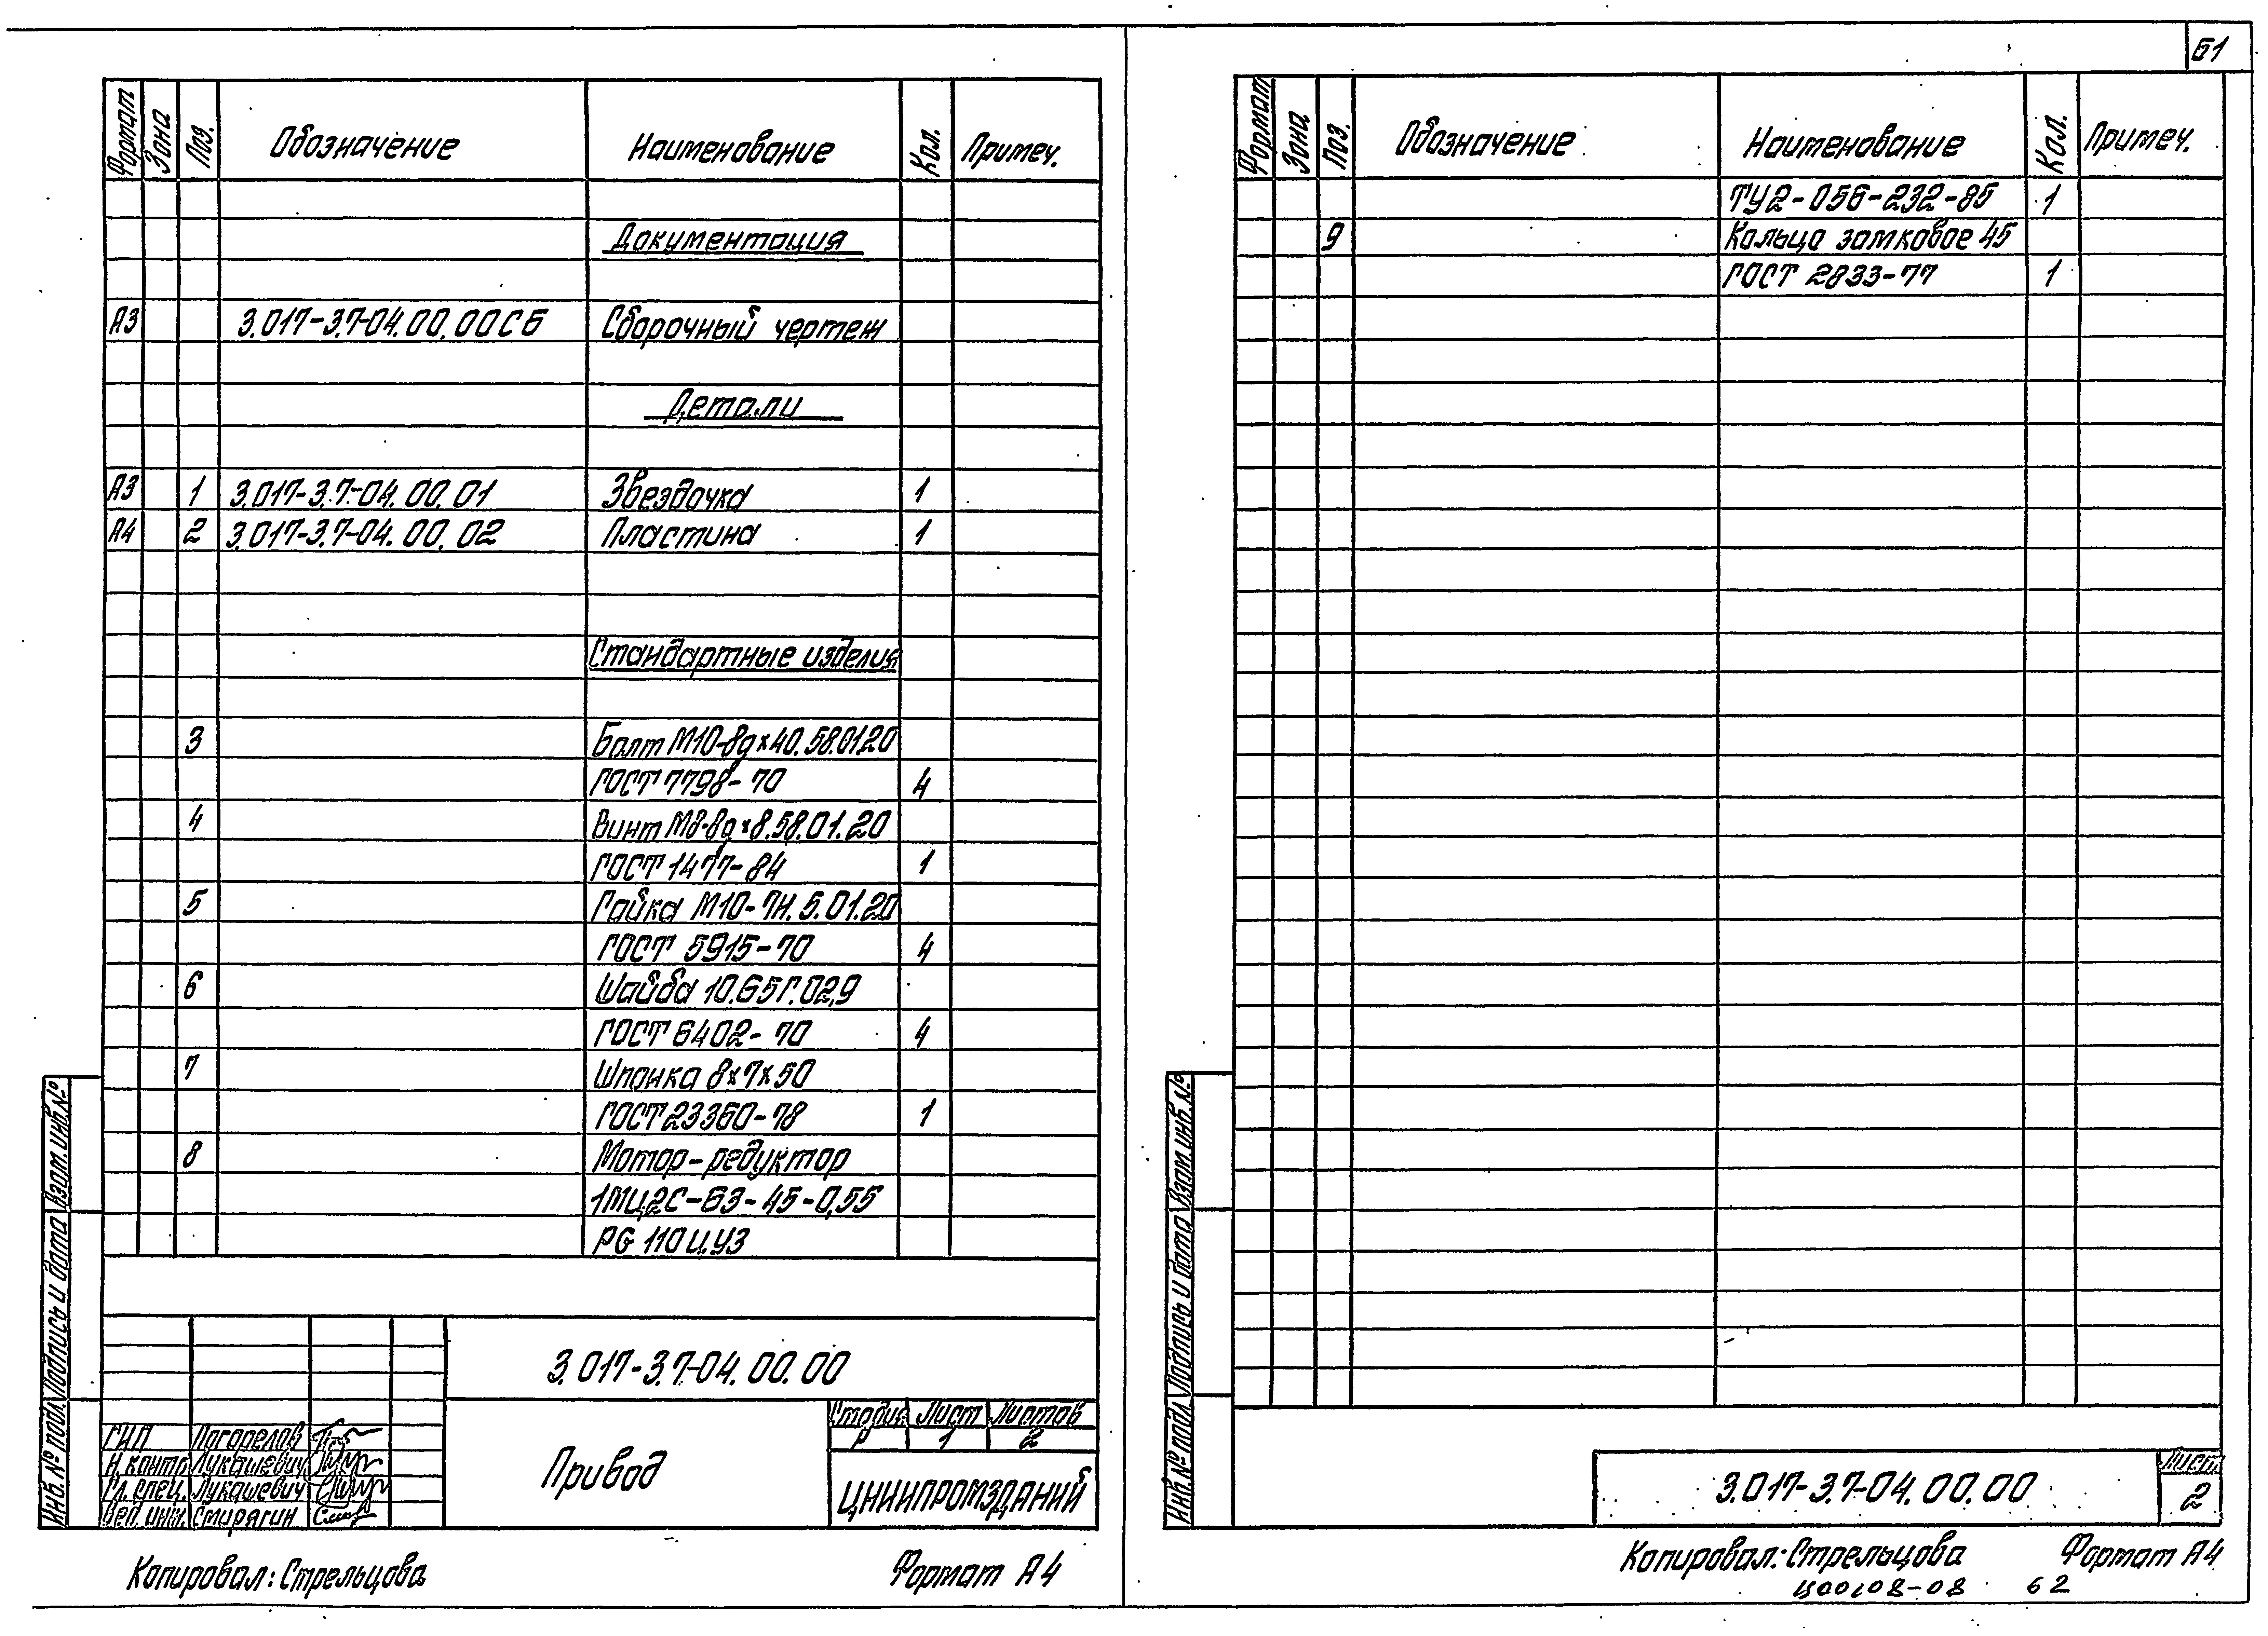 61
Формат Зона Поз. Обозначение Наименование Кол. Примеч.
Документация
А3 3.017-3.7-04.00.00СБ Сборочный чертеж
Детали
А3 1 3.017-3.7-04.00.01 Звездочка 1
А4 2 3.017-3.7-04.00.02 Пластина 1
Стандартные изделия
3 Болт М10-8gх40.58.0120
ГОСТ 7798-70 4
4 Винт М8-8gх8.58.01.20
ГОСТ 1477-84 1
5 Гайка М10-7Н.5.01.20
ГОСТ 5915-70 4
6 Шайба 10.65Г.02,9
ГОСТ 6402-70 4
7 Шпонка 8х7х50
ГОСТ 23360-78 1
8 Мотор-редуктор
1МЦ2С-63-45-0,55
РG 110 Ц.У3
3.017-3.7-04.00.00
ГИП Погорелов
Н. контр Лукашевич
Гл. спец. Лукашевич
Вед. инж. Стирягин
Привод
Стадия Лист Листов
Р 1 2
ЦНИИПРОМЗДАНИЙ
Инв. № подл. Подпись и дата Взам. инв. №
Копировал: Стрельцова Формат А4
Формат Зона Поз. Обозначение Наименование Кол. Примеч.
ТУ2-056-232-85 1
9 Кольцо замковое 45
ГОСТ 2833-77 1
Инв. № подл. Подпись и дата Взам. инв. №
3.017-3.7-04.00.00
Лист
2
Копировал: Стрельцова Формат А4
Ц00108-08 62